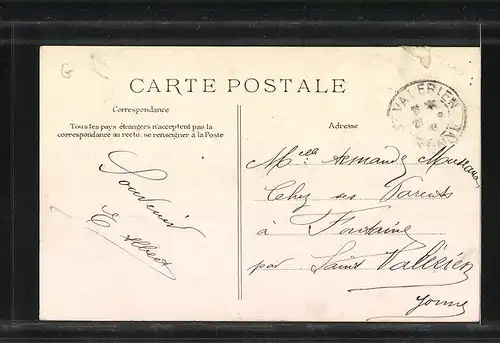 G
CARTE POSTALE
Correspondance
Tous les pays étrangers n'acceptent pas la
correspondance au recto, se renseigner à la Poste
Souvenir
E. Albert
Adresse
St VALERIEN
YONNE
Melle Armande
Chez ses Parents
à Fontaine
par Saint Vallérien
Yonne